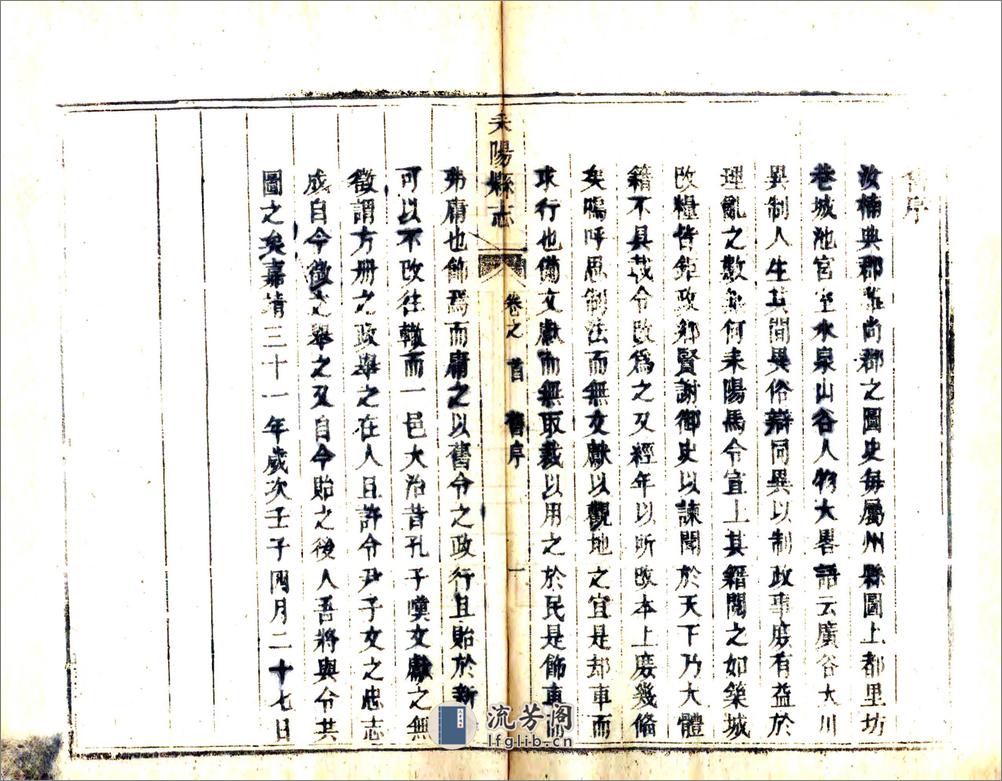 舊序
汝楠典郡雅尚郡之圖史每屬州縣圖上都里坊
巷城池宮室水泉山谷人物大畧語云廣谷大川
異制人生其間異俗辯同異以制政事庶有益於
理亂之數無何耒陽馬令宣上其籍閱之如築城
改糧皆鉅政鄉賢謝御史以諫聞於天下乃大體
籍不具載令改爲之及經年以所改本上庶幾備
矣嗚呼思制法而無文獻以觀地之宜是却車而
求行也備文獻而無取裁以用之於民是飾車而
弗庸也飾焉而庸之以舊令之政行且貽於新
可以不改往轍而一邑大治昔孔子嘆文獻之無
徵謂方册之政舉之在人且許令尹子文之忠志
成自令徵之舉之又自令貽之後人吾將與令共
圖之矣嘉靖三十一年歲次壬子閏月二十七日
耒陽縣志
卷之首 舊序
一
流芳阁
lfglib.cn